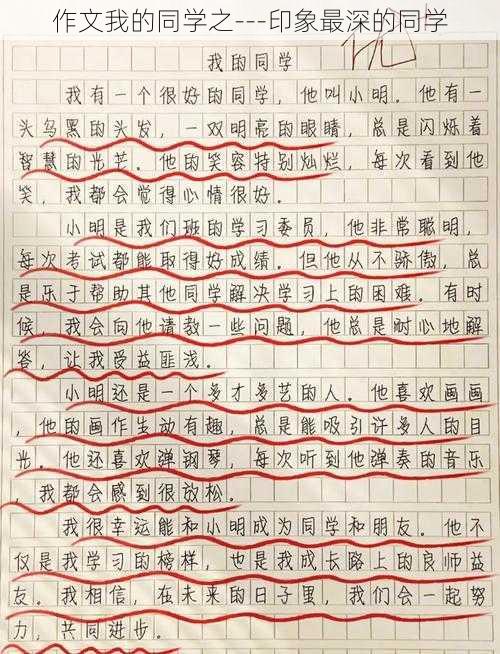 作文我的同学之---印象最深的同学
优
我的同学
我有一个很好的同学，他叫小明。他有一
头乌黑的头发，一双明亮的眼睛，总是闪烁着
智慧的光芒。他的笑容特别灿烂，每次看到他
笑，我都会觉得心情很好。
小明是我们班的学习委员，他非常聪明，
每次考试都能取得好成绩。但他从不骄傲，总
是乐于帮助其他同学解决学习上的困难。有时
候，我会向他请教一些问题，他总是耐心地解
答，让我受益匪浅。
小明还是一个多才多艺的人。他喜欢画画
，他的画作生动有趣，总是能吸引许多人的目
光。他还喜欢弹钢琴，每次听到他弹奏的音乐
，我都会感到很放松。
我很幸运能和小明成为同学和朋友。他不
仅是我学习的榜样，也是我成长路上的良师益
友。我相信，在未来的日子里，我们会一起努
力，共同进步。